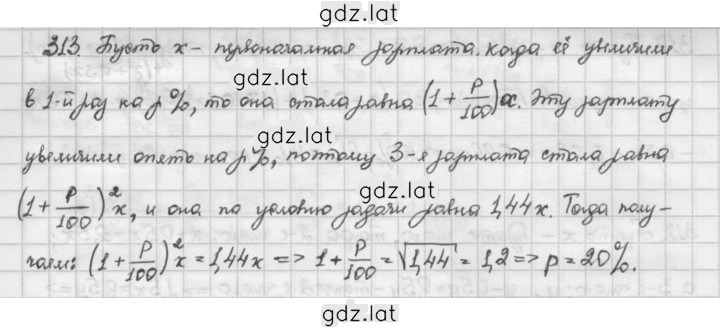 gdz.lat
313. Пусть x – первоначальная зарплата. Когда её увеличили
gdz.lat
в 1-й раз на p%, то она стала равна (1 + p/100)x. Эту зарплату
gdz.lat
увеличили опять на p%, поэтому 3-я зарплата стала равна
gdz.lat
(1 + p/100)²x, и она по условию задачи равна 1,44x. Тогда полу-
gdz.lat
чаем: (1 + p/100)²x = 1,44x => 1 + p/100 = √1,44 = 1,2 => p = 20%.
gdz.lat